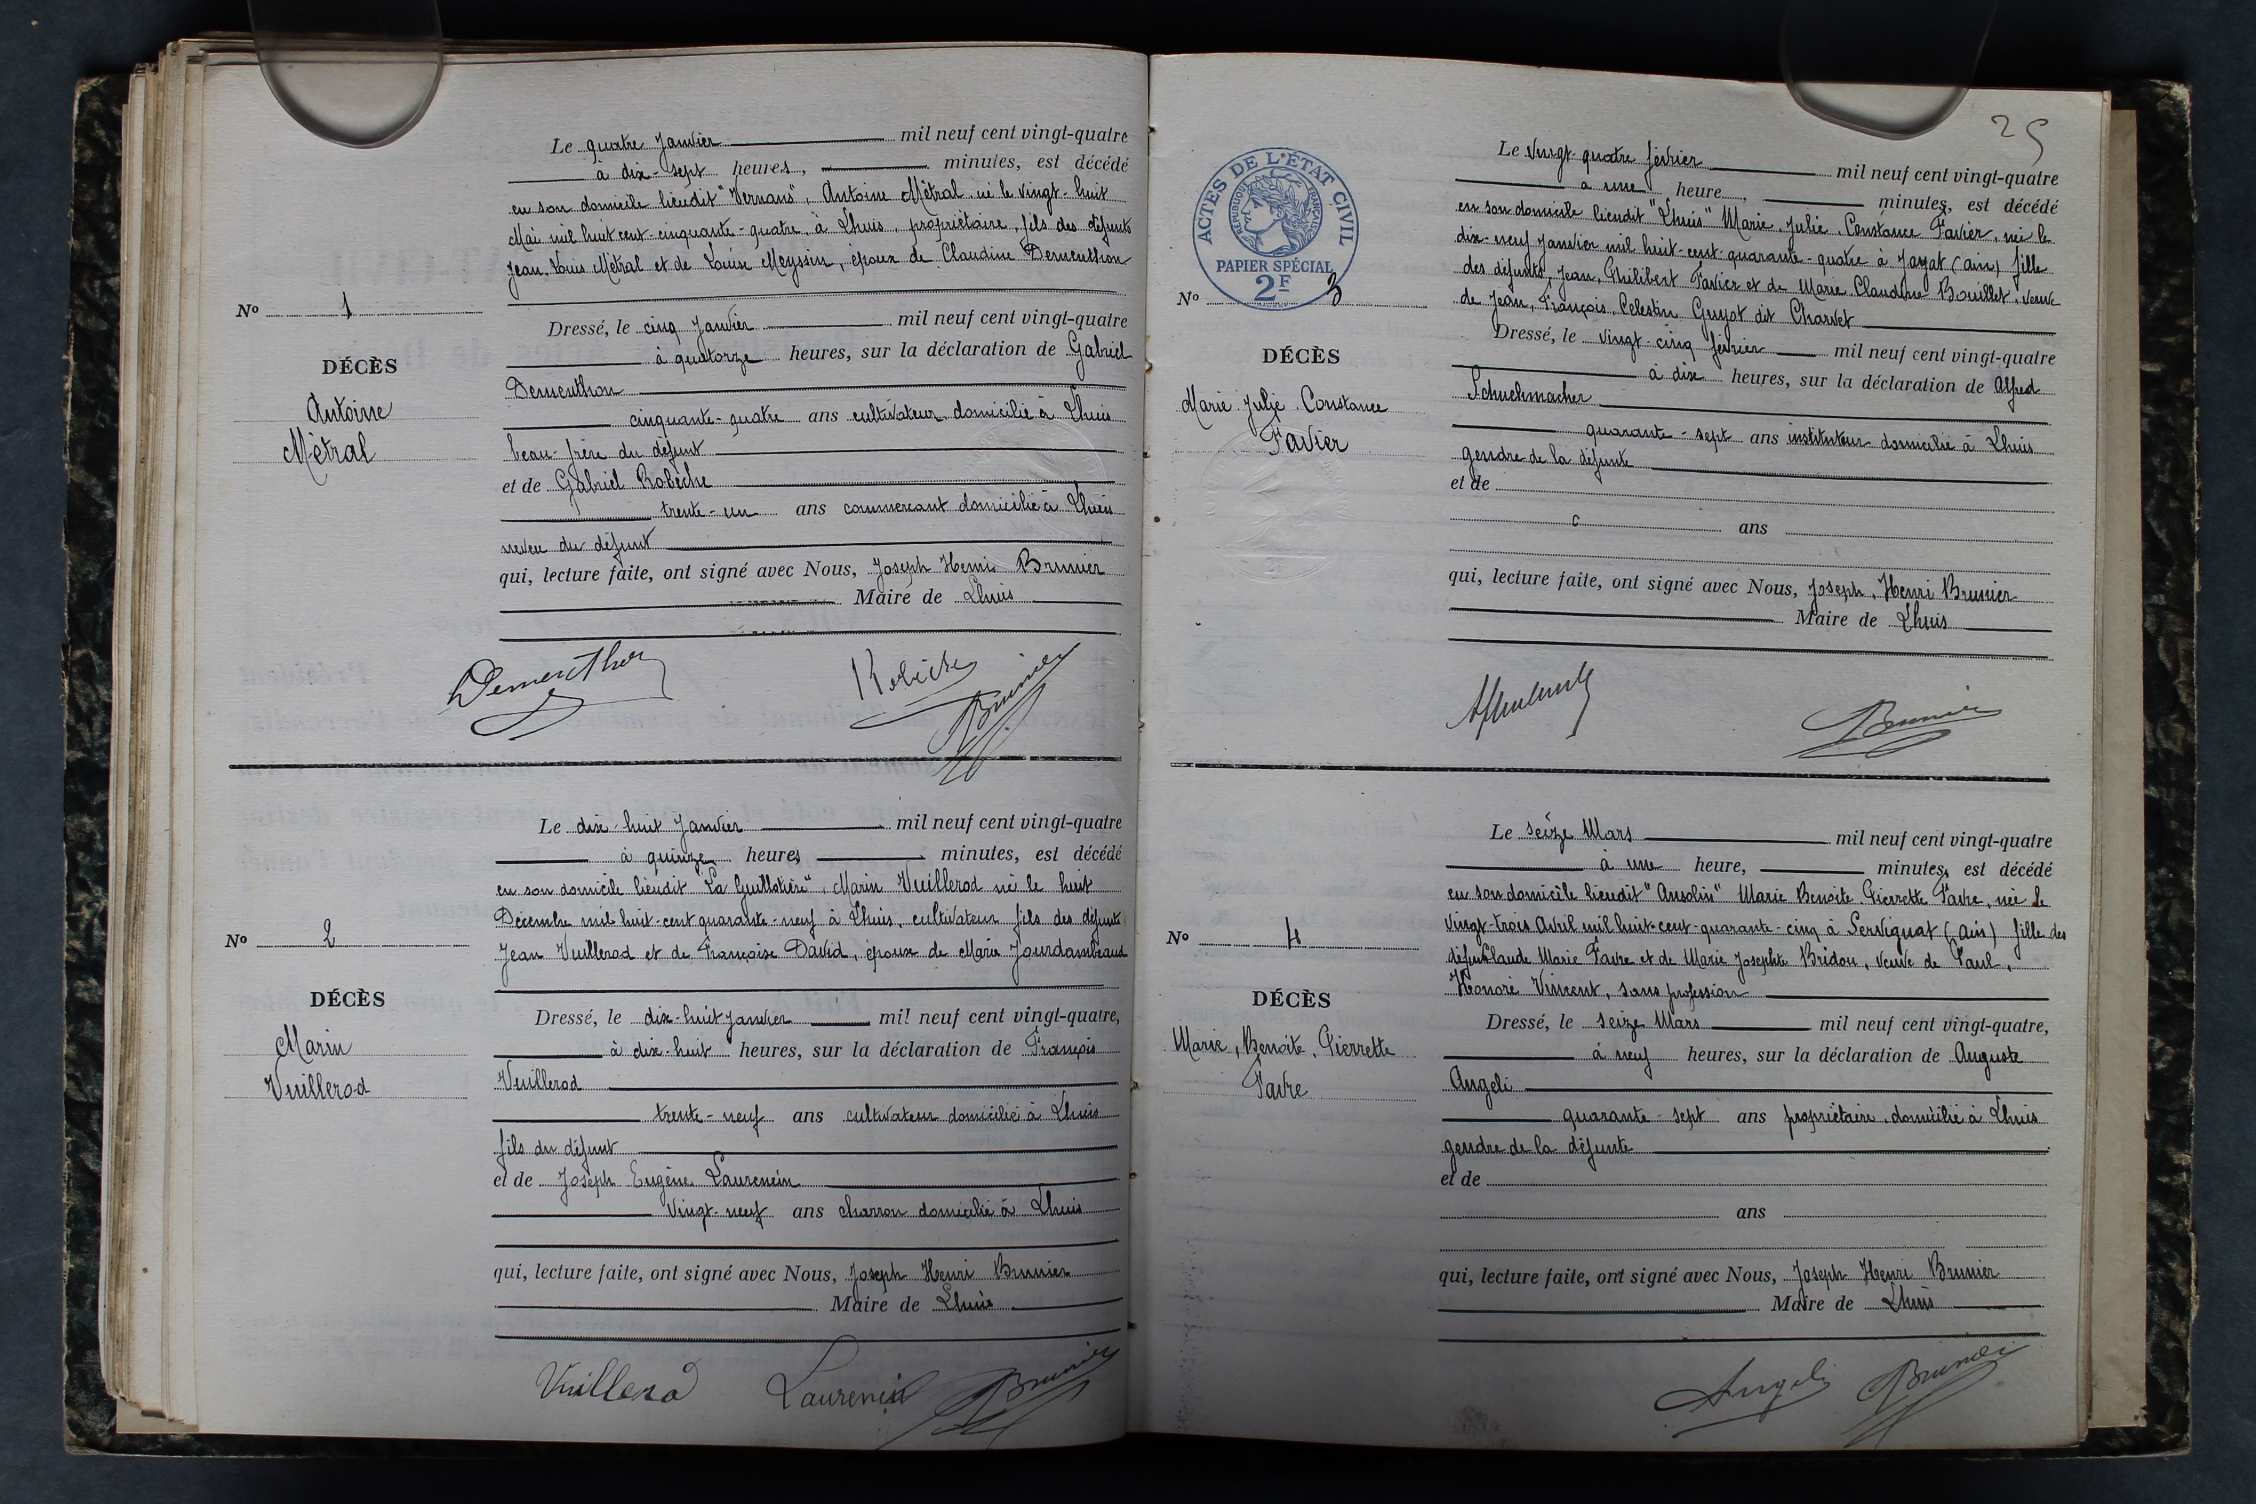 Le quatre Janvier mil neuf cent vingt-quatre
à dix-sept heures, minutes, est décédé
en son domicile lieudit "Vernans", Antoine Métral, né le vingt-huit
Mai mil huit cent-cinquante-quatre, à Lhuis, propriétaire, fils des défunts
Jean Louis Métral et de Louise Meyssin, époux de Claudine Dementhon
No 1
DÉCÈS
Antoine
Métral
Dressé, le cinq Janvier mil neuf cent vingt-quatre
à quatorze heures, sur la déclaration de Gabriel
Dementhon
cinquante-quatre ans cultivateur domicilié à Lhuis
beau-frère du défunt
et de Gabriel Robèche
trente-un ans commerçant domicilié à Lhuis
neveu du défunt
qui, lecture faite, ont signé avec Nous, Joseph Henri Brunier
Maire de Lhuis
Dementhon
Robèche
Brunier
Le dix-huit Janvier mil neuf cent vingt-quatre
à quinze heures minutes, est décédé
en son domicile lieudit "La Guillotière", Marin Vuillerod né le huit
Décembre mil huit-cent quarante-neuf à Lhuis, cultivateur fils des défunts
Jean Vuillerod et de Françoise David, époux de Marie Jourdambeaud
No 2
DÉCÈS
Marin
Vuillerod
Dressé, le dix-huit janvier mil neuf cent vingt-quatre,
à dix-huit heures, sur la déclaration de François
Vuillerod
trente-neuf ans cultivateur domicilié à Lhuis
fils du défunt
et de Joseph Eugène Laurencin
vingt-neuf ans charron domicilié à Lhuis
qui, lecture faite, ont signé avec Nous, Joseph Henri Brunier
Maire de Lhuis
Vuillerod
Laurencin
Brunier
25
ACTES DE L'ÉTAT CIVIL
RÉPUBLIQUE FRANÇAISE
PAPIER SPÉCIAL
2F
Le vingt-quatre février mil neuf cent vingt-quatre
à une heure, minutes, est décédé
en son domicile lieudit "Lhuis" Marie, Julie, Constance Favier, née le
dix-neuf janvier mil huit-cent quarante-quatre à Jayat (ain) fille
des défunts Jean, Philibert Favier et de Marie Claudine Bouillet, veuve
de Jean, François, Célestin Guyot dit Charvet
No 3
DÉCÈS
Marie, Julie, Constance
Favier
Dressé, le vingt-cinq février mil neuf cent vingt-quatre
à dix heures, sur la déclaration de Alfred
Schuchmacher
quarante-sept ans instituteur domicilié à Lhuis
gendre de la défunte
et de
ans
qui, lecture faite, ont signé avec Nous, Joseph, Henri Brunier
Maire de Lhuis
Brunier
Le seize Mars mil neuf cent vingt-quatre
à une heure, minutes, est décédé
en son domicile lieudit "Ansolin" Marie Benoite Pierrette Favre, née le
vingt-trois Avril mil huit-cent-quarante-cinq à Servignat (ain) fille des
défunts Claude Marie Favre et de Marie Josephte Bridon, veuve de Paul,
Honoré Vincent, sans profession
No 4
DÉCÈS
Marie, Benoite, Pierrette
Favre
Dressé, le seize Mars mil neuf cent vingt-quatre,
à neuf heures, sur la déclaration de Auguste
Angeli
quarante-sept ans propriétaire, domicilié à Lhuis
gendre de la défunte
et de
ans
qui, lecture faite, ont signé avec Nous, Joseph Henri Brunier
Maire de Lhuis
Angeli
Brunier